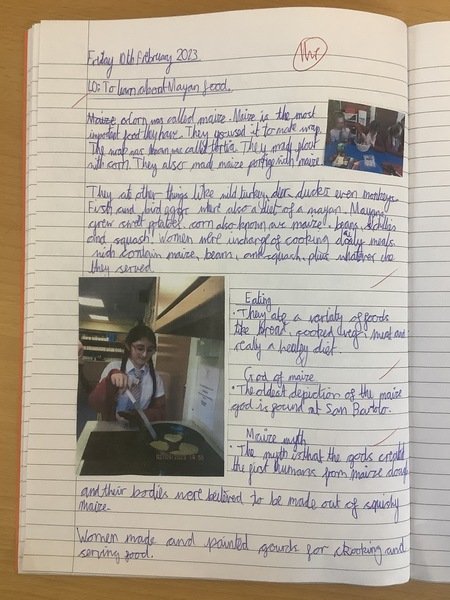 Friday 10th February 2023
1hr
LO: To learn about Mayan food.
Maize, a corn was called maize. Maize is the most
important food they have. They used it to make wrap.
The wrap was known was called tortia. They made flour
with corn. They also made maize porrige with maize.
They at other things like wild turkey, deer ducks even monkeys.
Fish and bird eggs where also a diet of a mayan. Mayans
grew sweet potatoes, corn also known as maize, beans, chillies
and squash. Women were incharge of cooking daily meals
wich contain maize, beans, and squash, plus whatever else
they served.
Eating
• They ate a variaty of foods
like bread, cooked veg, meat and
really a healthy diet.
God of maize
• The oldest depiction of the maize
god is found at San Bartolo.
Maize myth
• The myth is that the gods created
the first humans from maize dough
and their bodies were believed to be made out of squishy
maize.
Women made and painted gourds for cooking and
serving food.